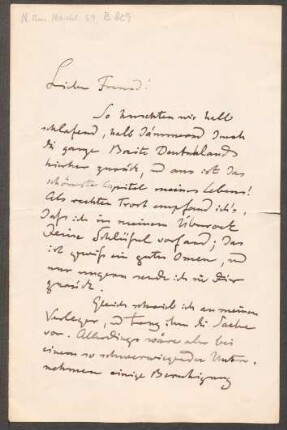 N. Mus. Nachl. 59, B 829
Lieber Freund!
So huschten wir halb
schlafend, halb dämmernd durch
die ganze Breite Deutschlands
hierher zurück, und aus ist das
schönste Kapitel meines Lebens!
Als rechten Trost empfand ich's,
daß ich in meinem Überrock
Deine Schlüssel vorfand; das
ist gewiß ein gutes Omen, und
nur ungern sende ich sie Dir
zurück.
Gleich schrieb ich an meinen
Verleger, u trug ihm die Sache
vor. Allerdings wäre aber bei
einem so schwerwiegenden Unter-
nehmen einige Beruhigung